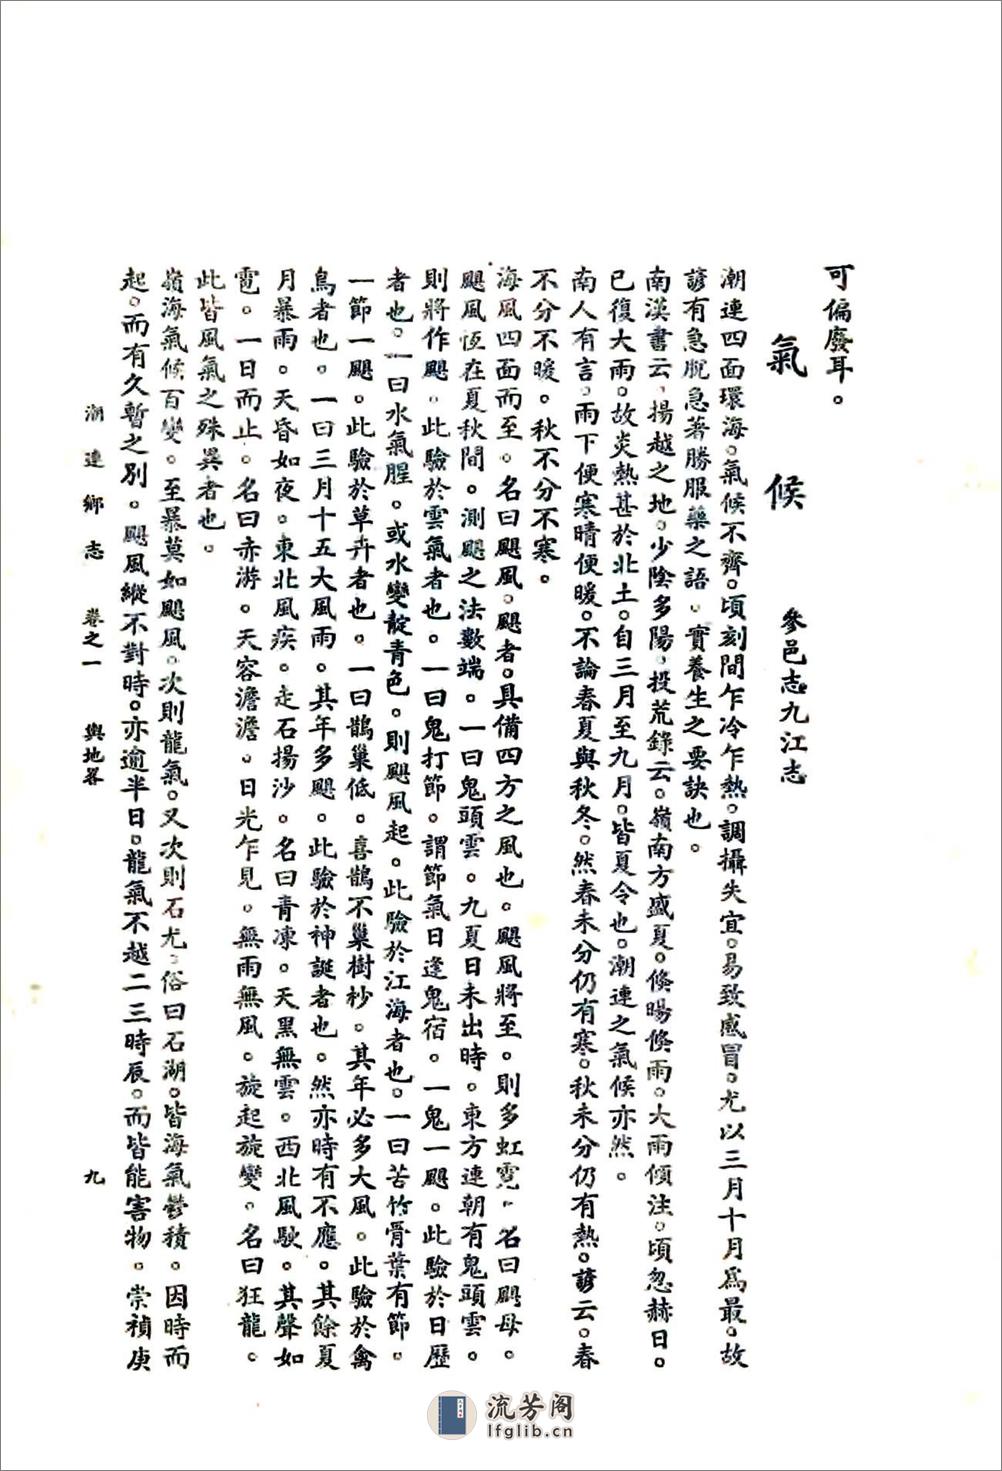 可偏廢耳。
氣候 參邑志九江志
潮連四面環海。氣候不齊。頃刻間乍冷乍熱。調攝失宜。易致感冒。尤以三月十月爲最。故
諺有急脫急著勝服藥之語。實養生之要訣也。
南漢書云。揚越之地。少陰多陽。投荒錄云。嶺南方盛夏。倏暘倏雨。大雨傾注。頃忽赫日。
已復大雨。故炎熱甚於北土。自三月至九月。皆夏令也。潮連之氣候亦然。
南人有言。雨下便寒晴便暖。不論春夏與秋冬。然春未分仍有寒。秋未分仍有熱。諺云。春
不分不暖。秋不分不寒。
海風四面而至。名曰颶風。颶者。具備四方之風也。颶風將至。則多虹霓。名曰颶母。
颶風恆在夏秋間。測颶之法數端。一曰鬼頭雲。九夏日未出時。東方連朝有鬼頭雲。
則將作颶。此驗於雲氣者也。一曰鬼打節。謂節氣日逢鬼宿。一鬼一颶。此驗於日歷
者也。一曰水氣腥。或水變靛青色。則颶風起。此驗於江海者也。一曰苦竹骨葉有節。
一節一颶。此驗於草卉者也。一曰鵲巢低。喜鵲不巢樹杪。其年必多大風。此驗於禽
鳥者也。一曰三月十五大風雨。其年多颶。此驗於神誕者也。然亦時有不應。其餘夏
月暴雨。天昏如夜。東北風疾。走石揚沙。名曰青凍。天黑無雲。西北風駛。其聲如
雹。一日而止。名曰赤游。天容澹澹。日光乍見。無雨無風。旋起旋變。名曰狂龍。
此皆風氣之殊異者也。
嶺海氣候百變。至暴莫如颶風。次則龍氣。又次則石尤。俗曰石湖。皆海氣鬱積。因時而
起。而有久暫之別。颶風縱不對時。亦逾半日。龍氣不越二三時辰。而皆能害物。崇禎庚
潮連鄉志 卷之一 輿地畧 九
流芳阁
lfglib.cn